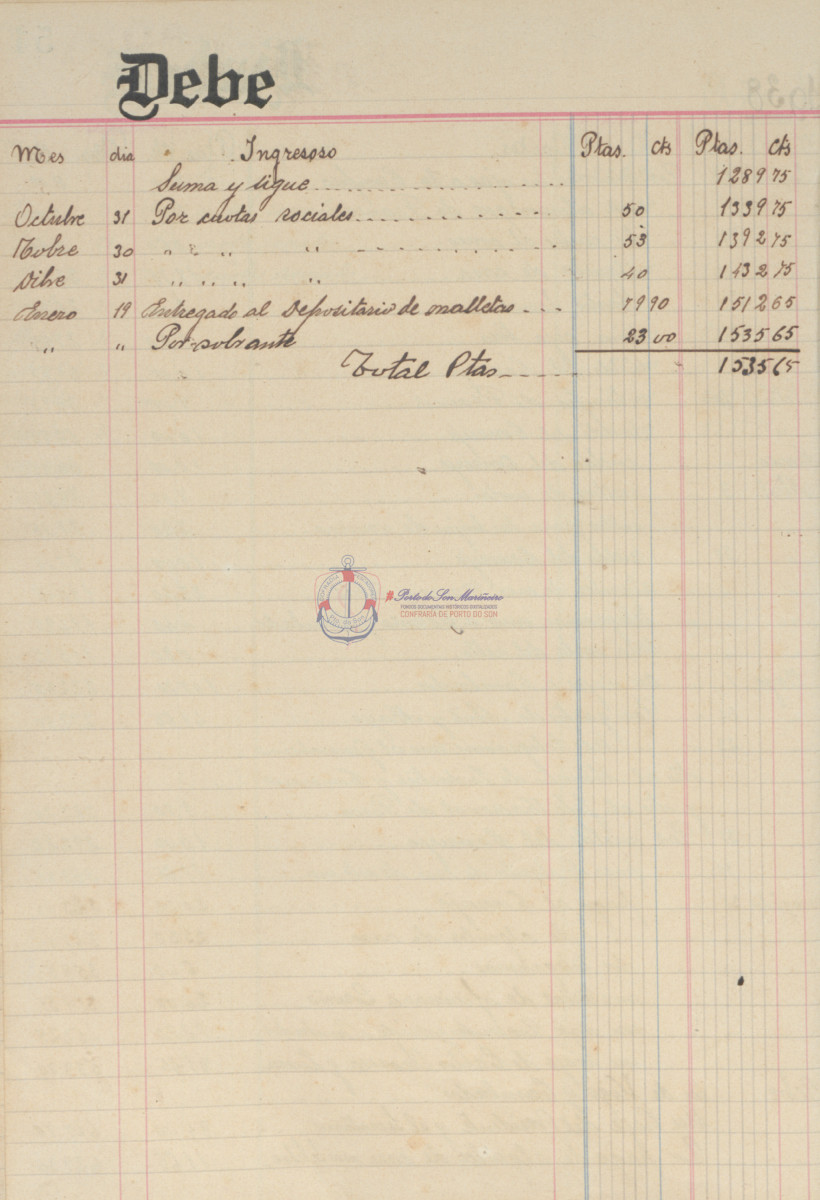 Debe
Mes dia Ingresoso Ptas. Cts Ptas. Cts
Suma y sigue 1289 75
Octubre 31 Por cuotas sociales 50 1339 75
Nobre 30 " " " " 53 1392 75
Dibre 31 " " " " " 40 1432 75
Enero 19 Entregado al Depositario de malletas 79 90 1512 65
" " Por sobrante 23 00 1535 65
Total Ptas 1535 65
Porto do Son Mariñeiro
FONDOS DOCUMENTAIS HISTÓRICOS DIXITALIZADOS
CONFRARÍA DE PORTO DO SON